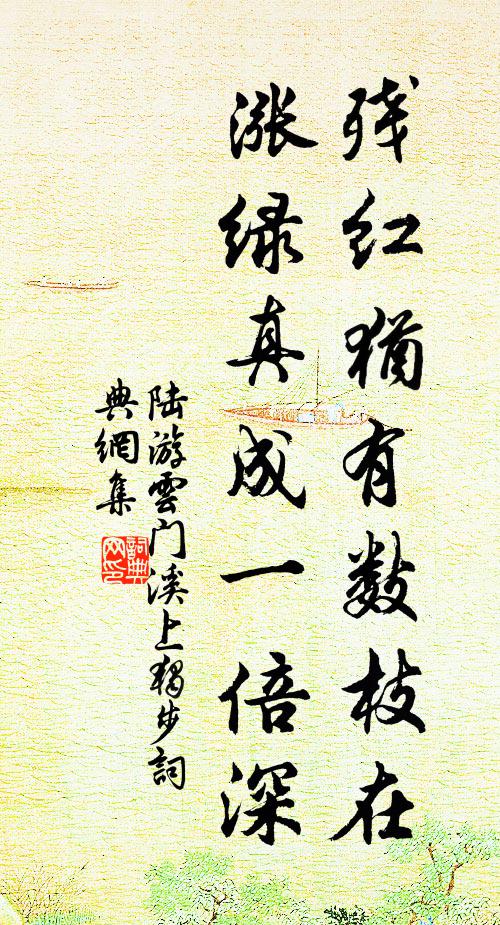 残红犹有数枝在
涨绿真成一倍深
陆游雲门溪上独步詞
典網集
詞典网印